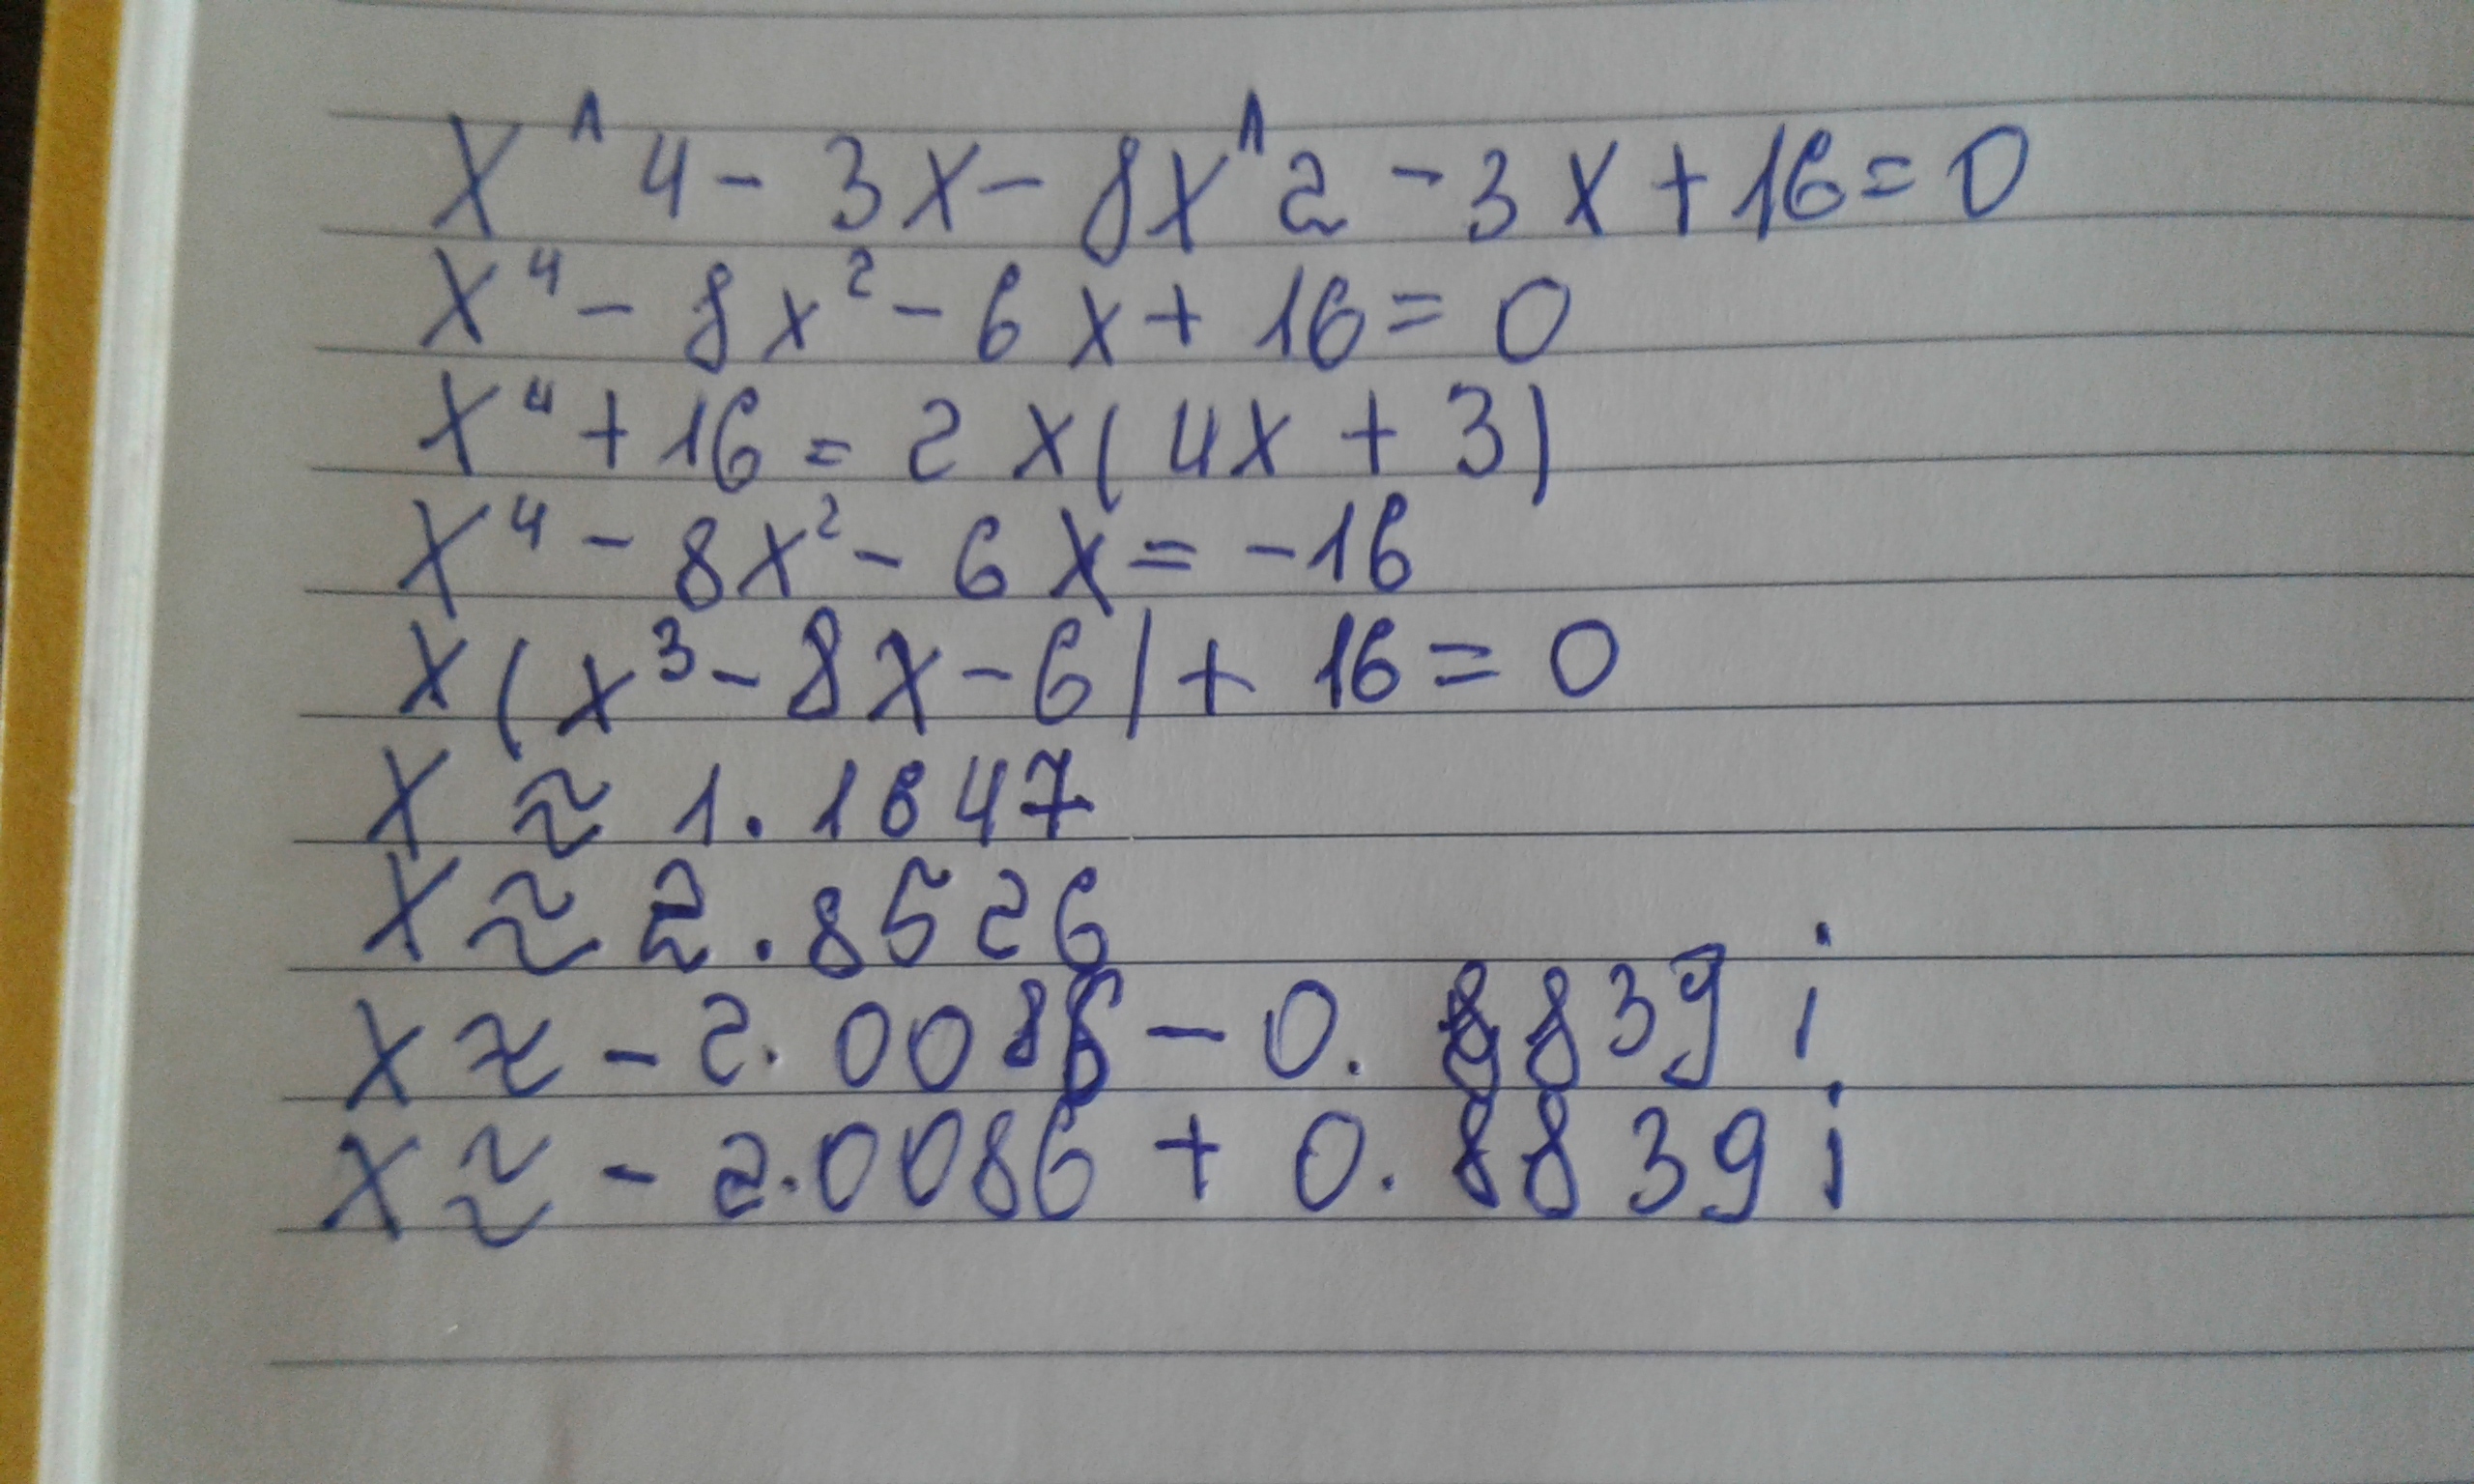 x^4 - 3x - 8x^2 - 3x + 16 = 0
x⁴ - 8x² - 6x + 16 = 0
x⁴ + 16 = 2x(4x + 3)
x⁴ - 8x² - 6x = -16
x(x³ - 8x - 6) + 16 = 0
x ≈ 1.1647
x ≈ 2.8526
x ≈ -2.0086 - 0.8839i
x ≈ -2.0086 + 0.8839i